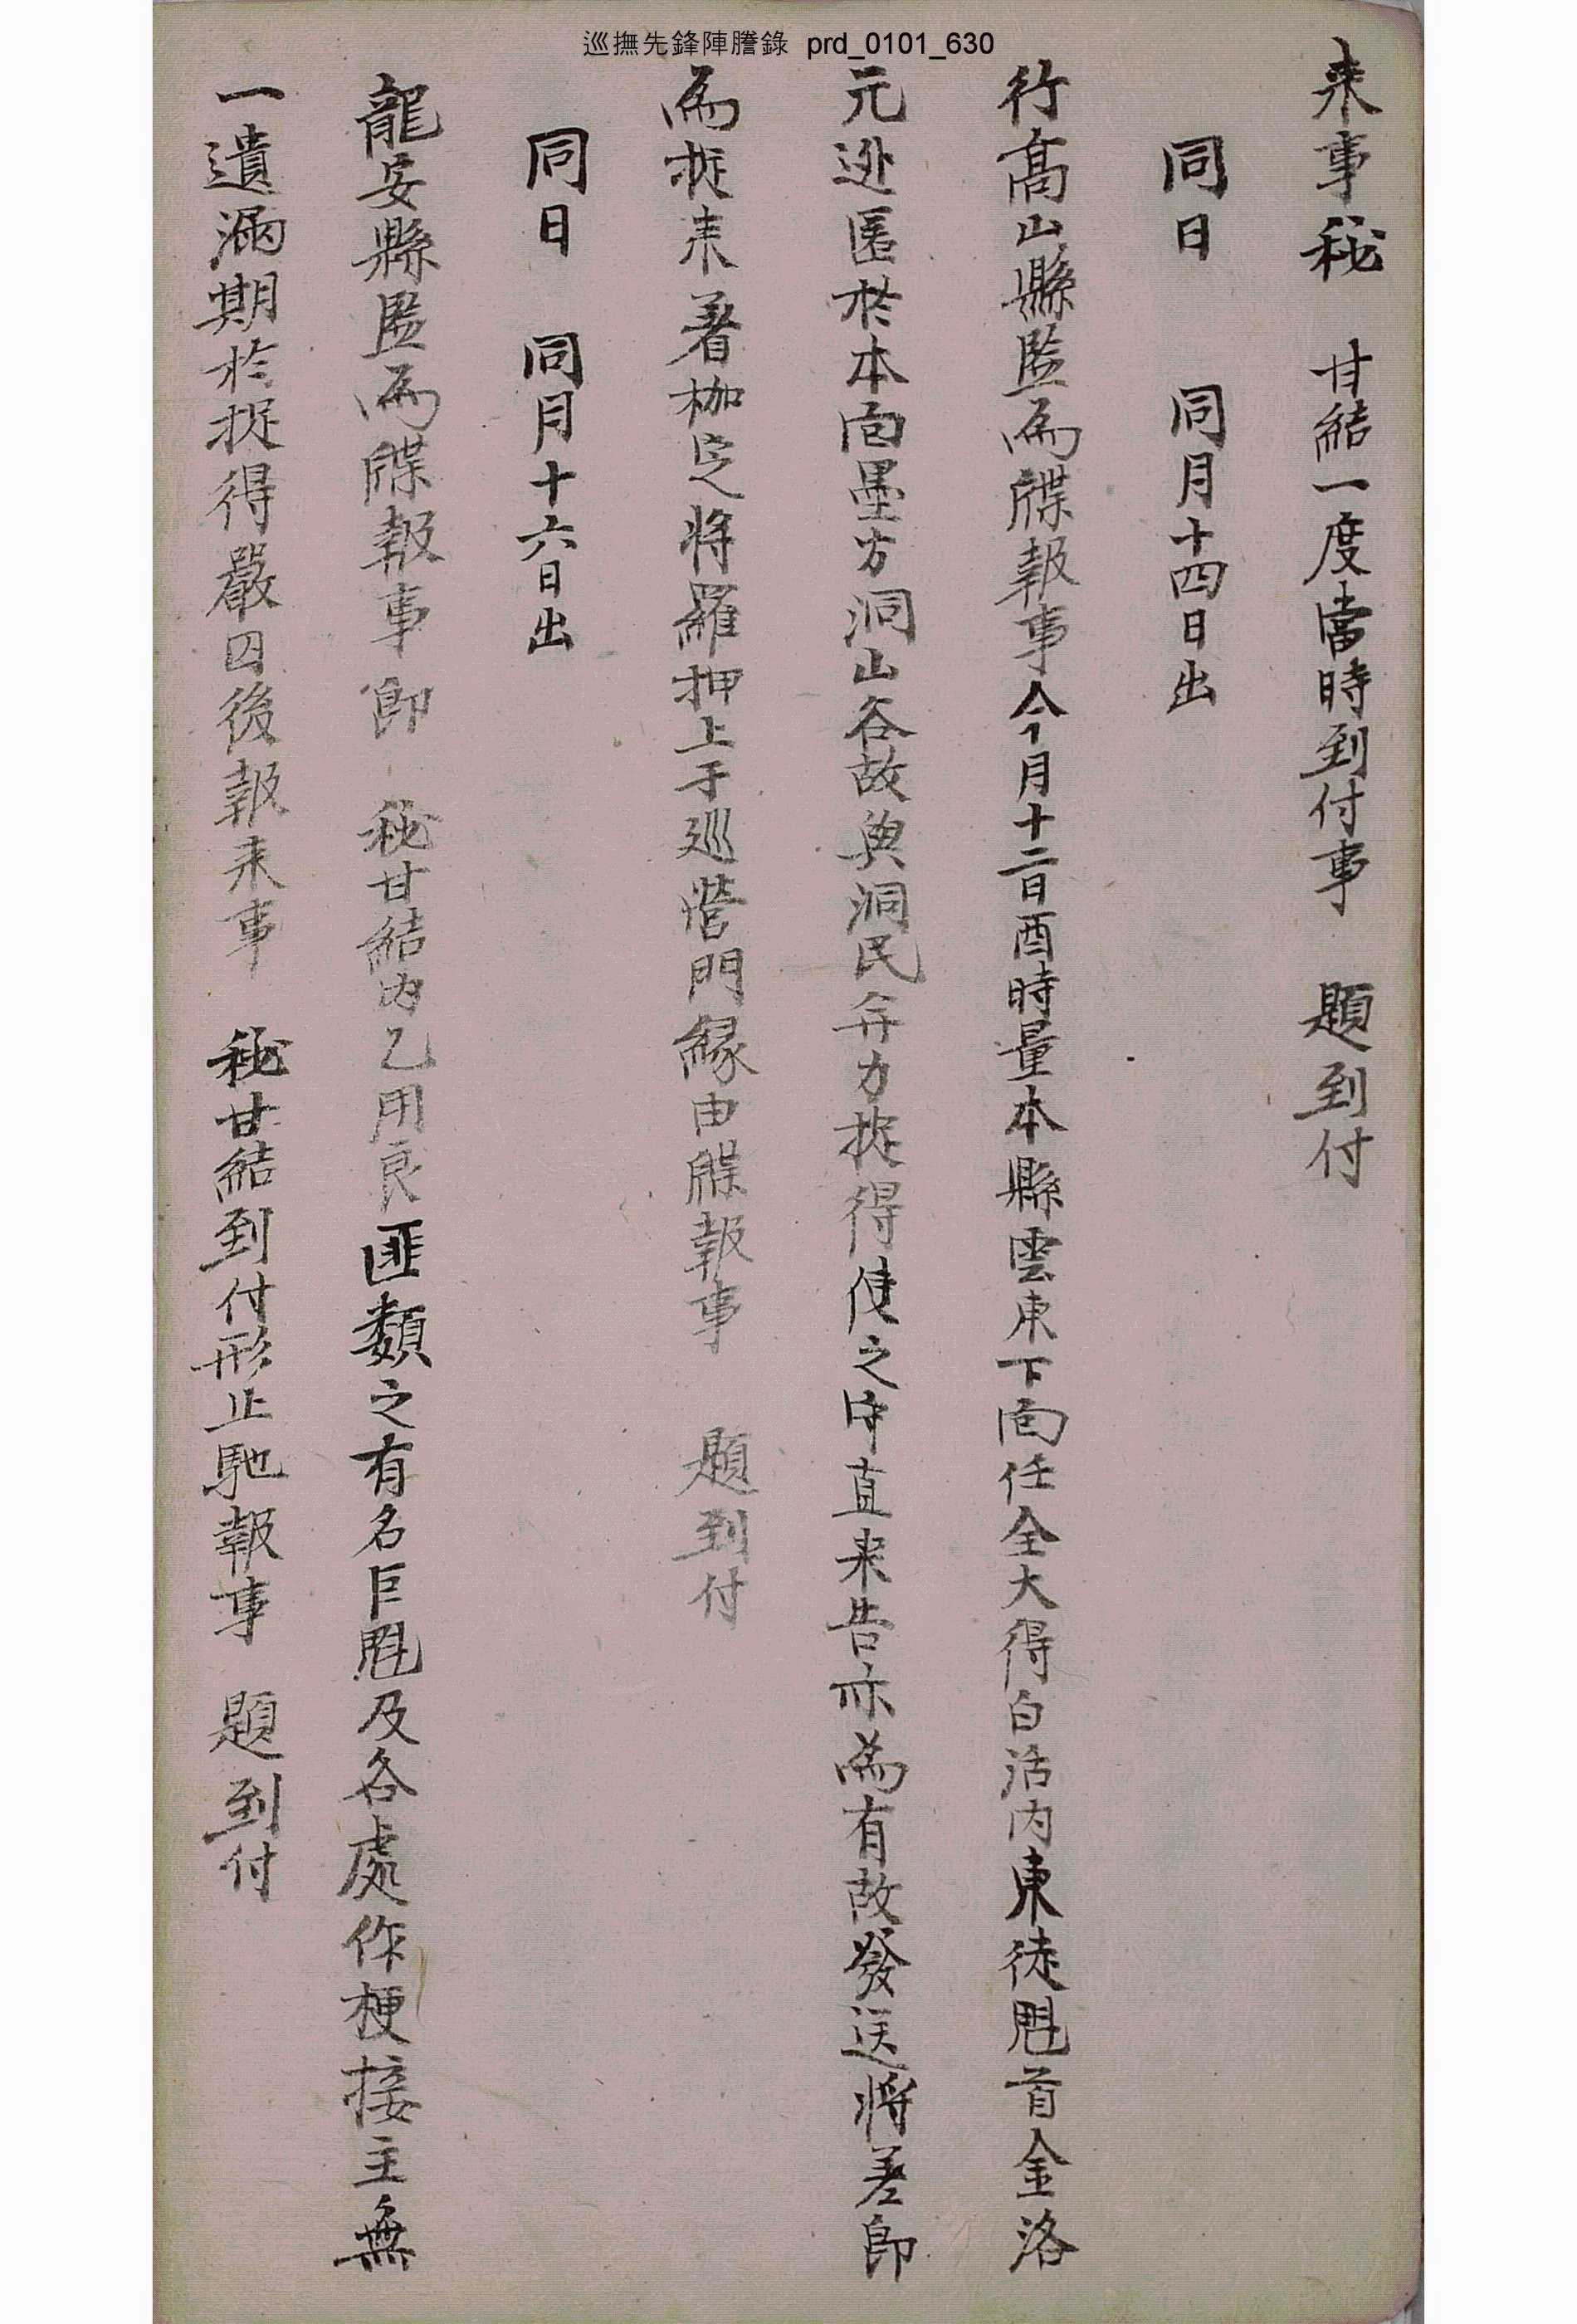 巡撫先鋒陣謄錄 prd_0101_630
来事秘 甘結一度當時到付事 題到付
同日 同月十四日出
行高山縣監爲牒報事今月十二日酉時量本縣雲東下面任全大得白活内東徒魁首金洛
元逊匿於本面墨方洞山谷故與洞民弁力捉得使之守直来告亦爲有故發送將差卽
爲捉来着枷定將羅押上于巡營門緣由牒報事 題到付
同日 同月十六日出
龍安縣監爲牒報事卽 秘甘結内乙用良匪類之有名巨魁及各處作梗接主無
一遺漏期於捉得嚴囚後報来事 秘甘結到付形止馳報事 題到付